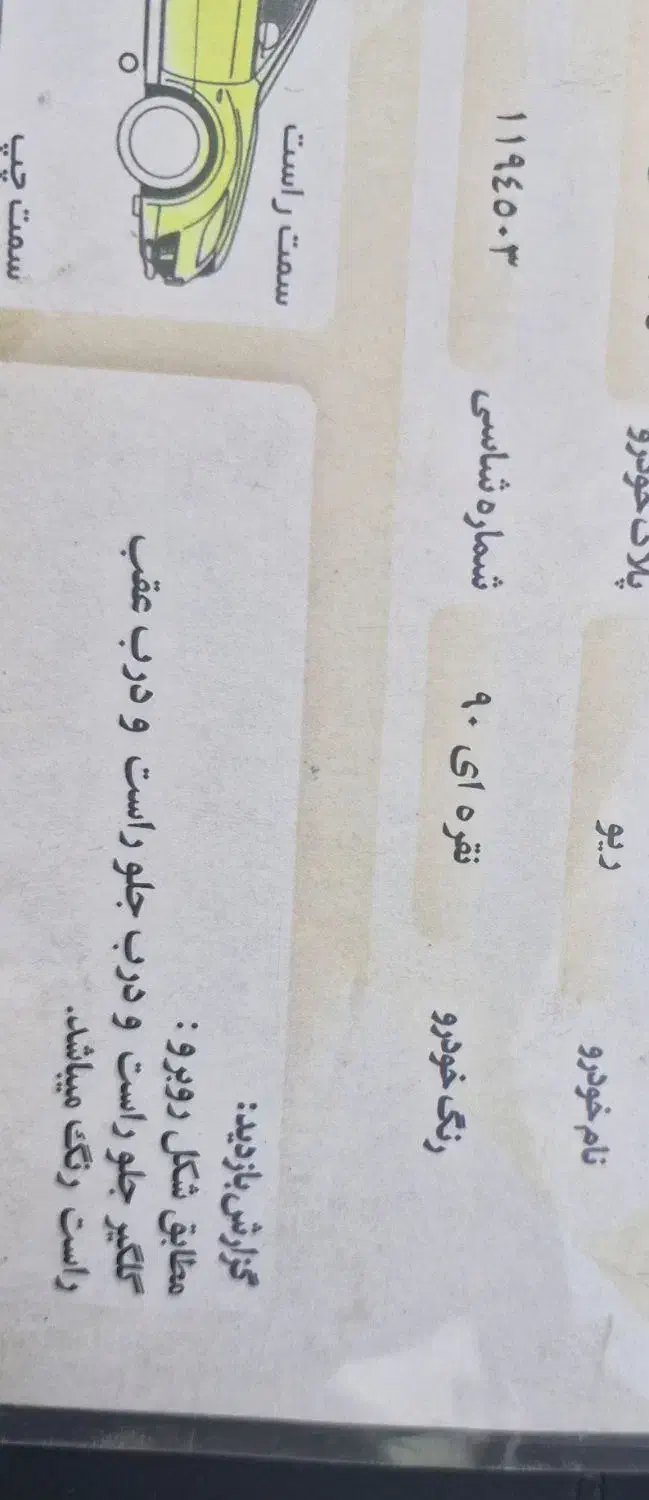 نام خودرو ریو پلاک خودرو
رنگ خودرو نقره ای ۹۰ شماره شاسی ۱۱۹٤۵۰۳
سمت راست
سمت چپ
گزارش بازدید:
مطابق شکل روبرو :
گلگیر جلو راست و درب جلو راست و درب عقب
راست رنگ میباشد.